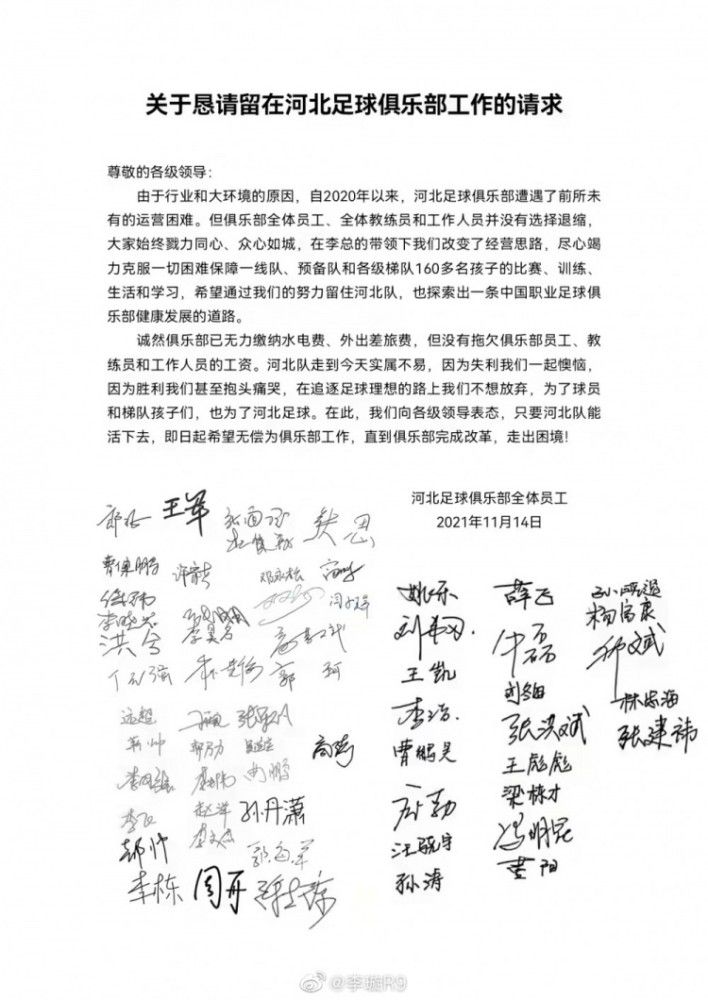 关于恳请留在河北足球俱乐部工作的请求
尊敬的各级领导：
由于行业和大环境的原因，自2020年以来，河北足球俱乐部遭遇了前所未
有的运营困难。但俱乐部全体员工、全体教练员和工作人员并没有选择退缩，
大家始终戮力同心、众心如城，在李总的带领下我们改变了经营思路，尽心竭
力克服一切困难保障一线队、预备队和各级梯队160多名孩子的比赛、训练、
生活和学习，希望通过我们的努力留住河北队，也探索出一条中国职业足球俱
乐部健康发展的道路。
诚然俱乐部已无力缴纳水电费、外出差旅费，但没有拖欠俱乐部员工、教
练员和工作人员的工资。河北队走到今天实属不易，因为失利我们一起懊恼，
因为胜利我们甚至抱头痛哭，在追逐足球理想的路上我们不想放弃，为了球员
和梯队孩子们，也为了河北足球。在此，我们向各级领导表态，只要河北队能
活下去，即日起希望无偿为俱乐部工作，直到俱乐部完成改革，走出困境！
河北足球俱乐部全体员工
2021年11月14日
王军
洪兮
郭 珂
孙丹潇
李栋 周丹
姚乐 薛飞
王凯
李浩
曹鹏昊
孙涛
牛磊
张洪斌
王彪彪
梁栋才
冯明昆
黄阳
杨富康
林忠海
张建祎
@李璇R9